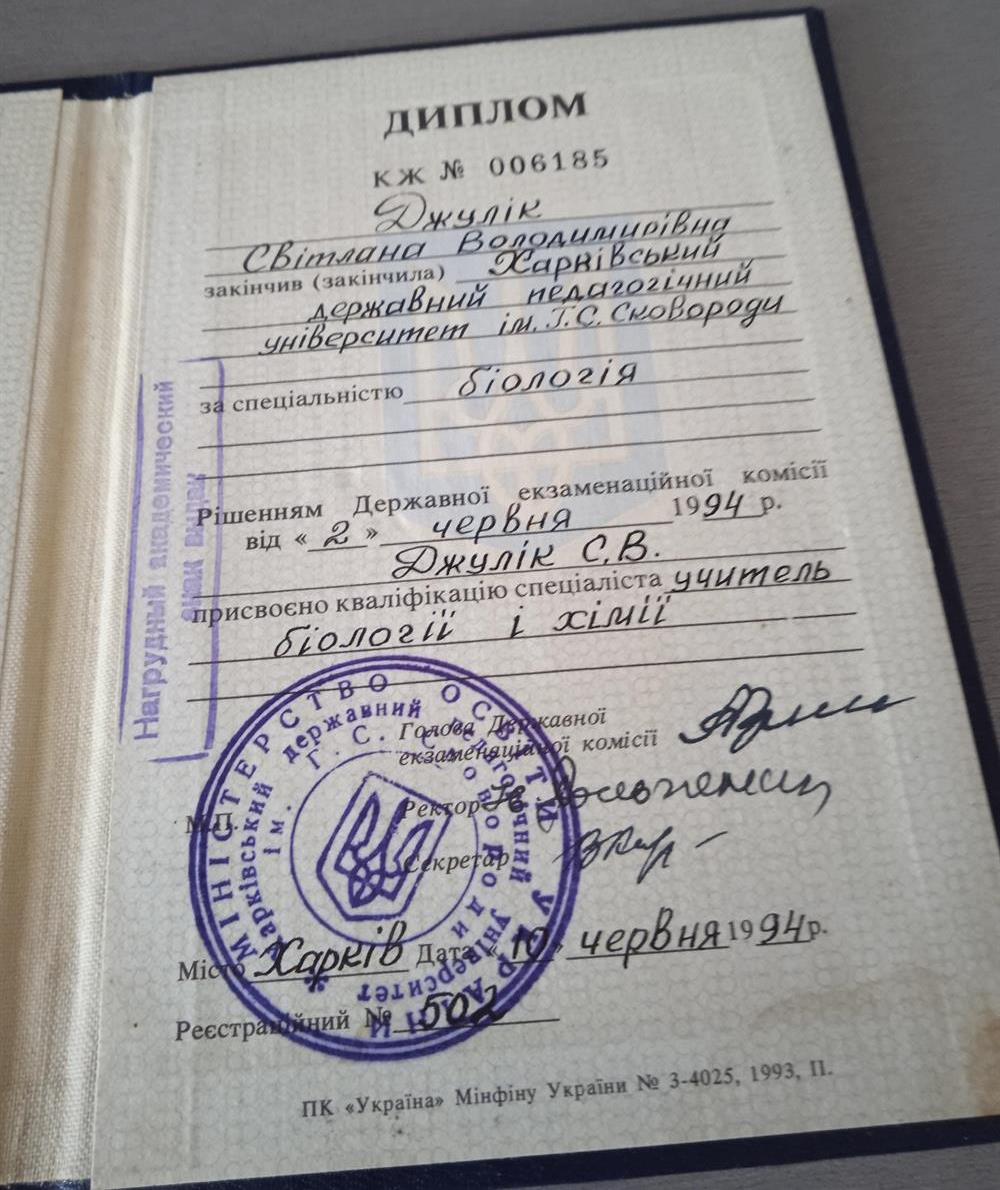 ДИПЛОМ
КЖ № 006185
Джулік
Світлана Володимирівна
закінчив (закінчила) Харківський
державний педагогічний
університет ім. Г.С. Сковороди
за спеціальністю біологія
Рішенням Державної екзаменаційної комісії
від « 2 » червня 1994 р.
Джулік С.В.
присвоєно кваліфікацію спеціаліста учитель
біології і хімії
Голова Державної
екзаменаційної комісії
Ректор
М.П.
Секретар
Місто Харків Дата « 10 » червня 1994 р.
Реєстраційний № 502
ПК «Україна» Мінфіну України № 3-4025, 1993, II.
Нагрудный академический
знак выдан
МІНІСТЕРСТВО ОСВІТИ УКРАЇНИ
Харківський державний педагогічний університет
ім. Г. С. Сковороди